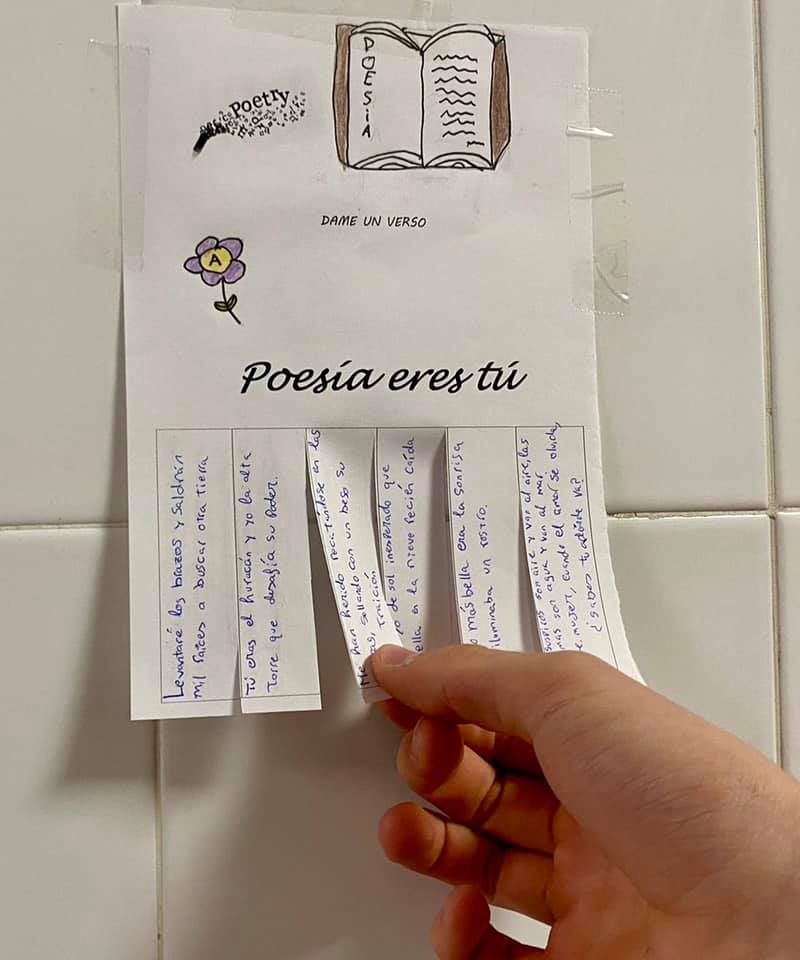 POESIA
Poetry
DAME UN VERSO
A
Poesía eres tú
Levantaré los brazos y saldrán
mil raíces a buscar otra tierra
Tú eras el huracán y yo la alta
Torre que desafía su poder.
Me han herido recatándose en las
sellando con un beso su
traición
de sol inesperado que
en la nieve recién caída
más bella era la sonrisa
iluminaba un rostro.
suspiros son aire y van al aire, las
son agua y van al mar
mujer, cuando el amor se olvida,
¿sabes tu adónde va?